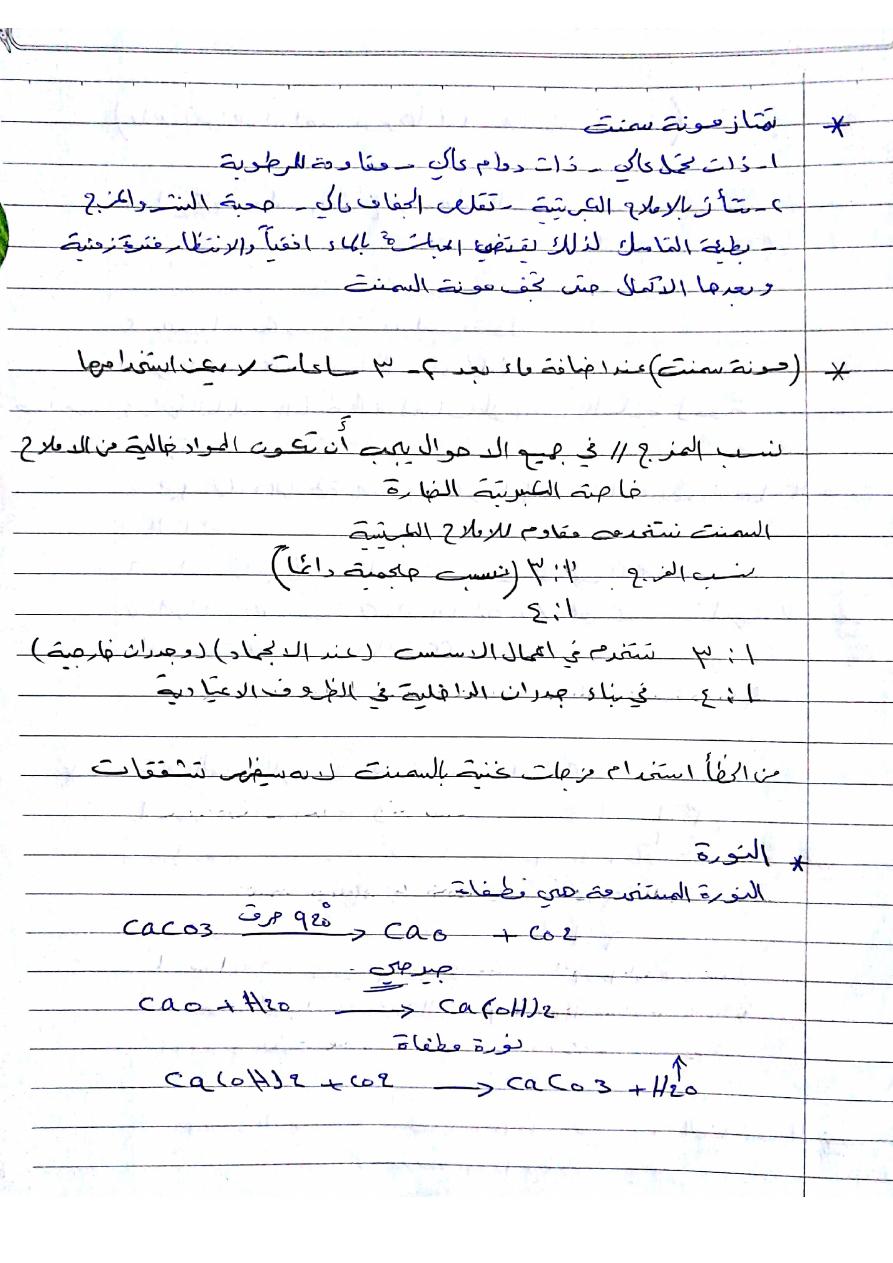 * تمتاز مونة سمنت
١- ذات تحمل عالي - ذات دوام عالي - مقاومة للرطوبة
٢- تتأثر بالاملاح الكبريتية - تقلص الجفاف عالي - صعبة النشر والمزج
- بطيئة التماسك لذلك يقتضي المباشرة بالبناء افقياً والانتظار فترة زمنية
وبعدها الاكمال حتى تجف مونة السمنت
* (مونة سمنت) عند اضافة ماء بعد ٢-٣ ساعات لا يمكن استخدامها
نسب المزج // في جميع الاحوال يجب أن تكون المواد خالية من الاملاح
خاصة الكبريتية الضارة
السمنت نستخدمه مقاوم للاملاح الكبريتية
نسب المزج ١:٣ (نسب حجمية دائماً)
١:٤
١:٣ تستخدم في اعمال الاسس (عند الانجماد) (وجدران خارجية)
١:٤ في بناء جدران الداخلية في الظروف الاعتيادية
من الخطأ استخدام مزجات غنية بالسمنت لانه سيظهر تشققات
* النورة
النورة المستخدمة هي مطفاة
CaCO3 حرق 920° → CaO + CO2
جير حي
CaO + H2O → Ca(OH)2
نورة مطفاة
Ca(OH)2 + CO2 → CaCO3 + H2O ↑